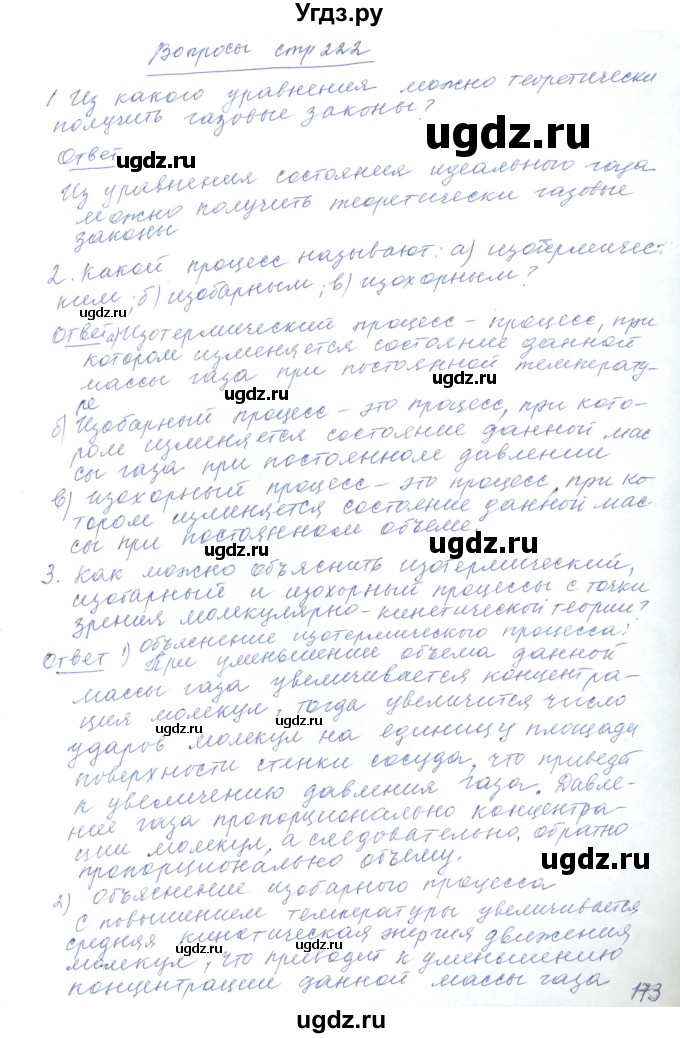 Угдз.ру
Вопросы стр 222
1 Из какого уравнения можно теоретически
получить газовые законы?
ugdz.ru
Ответ
ugdz.ru
Из уравнения состояния идеального газа
можно получить теоретически газовые
законы
ugdz.ru
2. Какой процесс называют: а) изотермичес-
ким; б) изобарным; в) изохорным?
ugdz.ru
Ответ а) Изотермический процесс - процесс, при
котором изменяется состояние данной
массы газа при постоянной температу-
ре
ugdz.ru
ugdz.ru
б) Изобарный процесс - это процесс, при кото-
ром изменяется состояние данной мас
сы газа при постоянном давлении
ugdz.ru
в) изохорный процесс - это процесс, при ко
тором изменяется состояние данной мас
сы при постоянном объеме.
ugdz.ru
ugdz.ru
3. Как можно объяснить изотермический,
изобарный и изохорный процессы с точки
зрения молекулярно-кинетической теории?
Ответ 1) Объяснение изотермического процесса:
При уменьшении объема данной
ugdz.ru
ugdz.ru
массы газа увеличивается концентра-
ция молекул, тогда увеличится число
ugdz.ru
ударов молекул на единицу площади
поверхности стенки сосуда, что приведёт
к увеличению давления газа. Давле-
ugdz.ru
ние газа пропорционально концентра-
ции молекул, а следовательно, обратно
пропорционально объему.
ugdz.ru
ugdz.ru
2) Объяснение изобарного процесса
С повышением температуры увеличивается
ugdz.ru
средняя кинетическая энергия движения
молекул, что приводит к уменьшению
ugdz.ru
концентрации данной массы газа
173
ugdz.ru